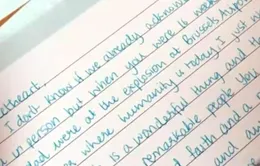 etheart,
I don't know if we already acknow
in person but when you were 16 week
Dad were at the explosion at Brussels Airpo
where humanity is today, I just w
is a wonderful thing and th
remarkable people
faith and a
and a